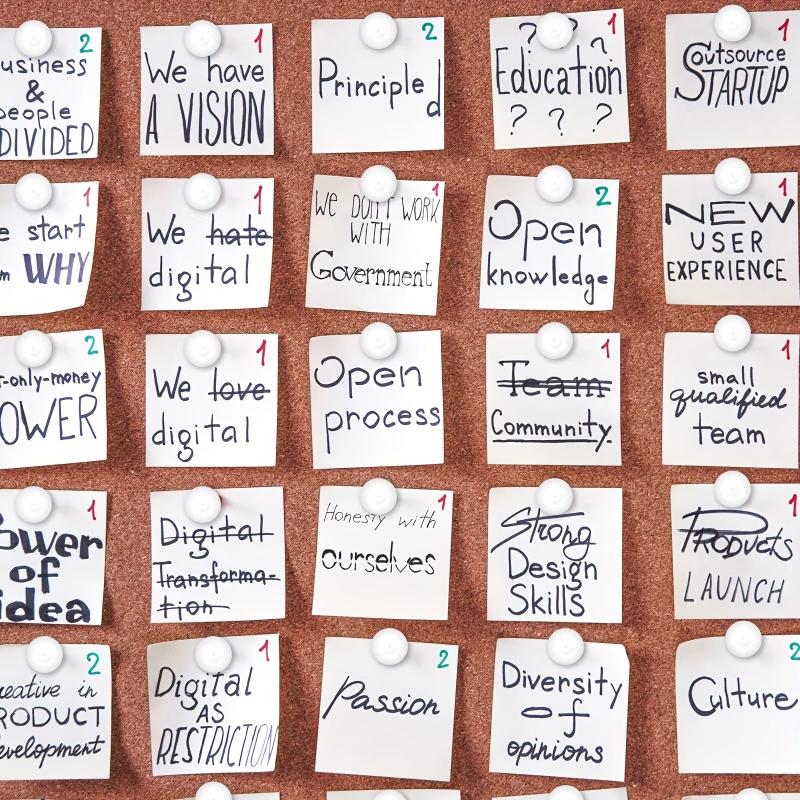 2
usiness
&
people
DIVIDED
1
We have
A VISION
2
Principled
1
? ? ?
Education
? ? ?
1
Outsource
STARTUP
1
e start
m WHY
1
We hate
digital
1
WE DON'T WORK
WITH
Government
2
Open
knowledge
1
NEW
USER
EXPERIENCE
2
r-only-money
OWER
1
We love
digital
Open
process
1
Team
Community.
1
small
qualified
team
1
ower
of
idea
Digital
Transforma-
tion
1
Honesty with
ourselves
Strong
Design
Skills
1
PRODUCTS
LAUNCH
2
reative in
RODUCT
evelopment
1
Digital
AS
RESTRICTION
2
Passion
Diversity
of
opinions
2
Culture